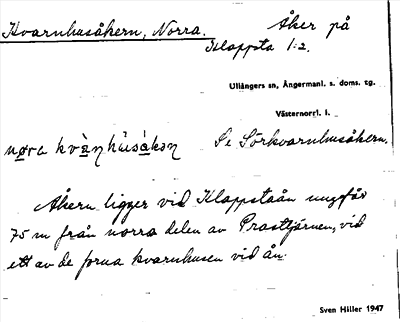 Kvarnhusåkern, Norra. Åker på
Klappsta 1:2.
Ullångers sn, Ångermanl. s. doms. tg.
Västernorrl. l.
nøra kvàṇhùsàkəṇ Se Sörkvarnhusåkern.
Åkern ligger vid Klappstaån ungefär
75 m från norra delen av Prosttjärnen, vid
ett av de forna kvarnhusen vid ån.
Sven Hiller 1947